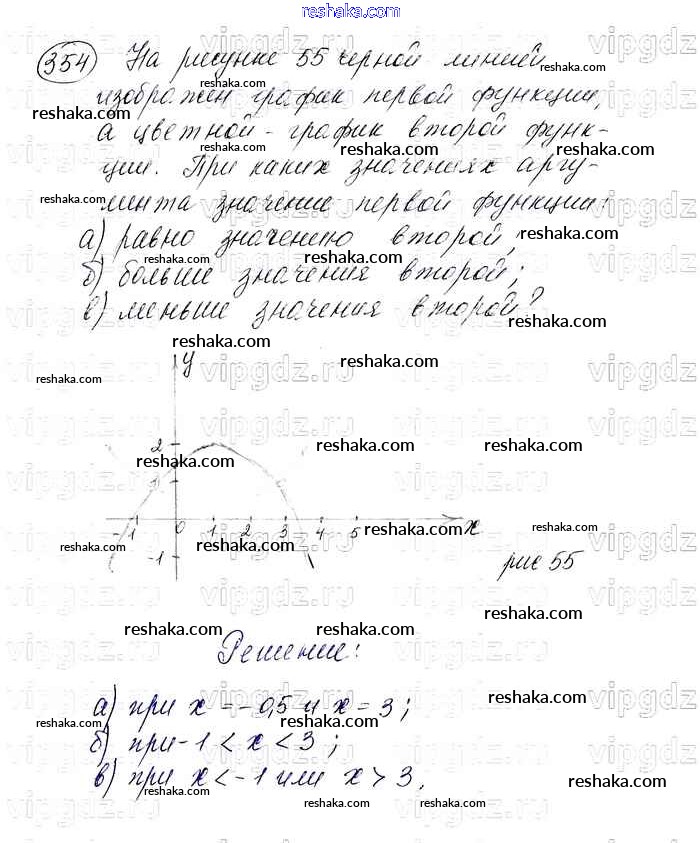 reshaka.com
354 На рисунке 55 черной линией
изображён график первой функции,
а цветной - график второй функ-
ции. При каких значениях аргу-
мента значение первой функции:
а) равно значению второй;
б) больше значения второй;
в) меньше значения второй?
y
2
1
-1 0 1 2 3 4 5 x
-1
рис 55
Решение:
а) при x = -0,5 и x = 3;
б) при -1 < x < 3;
в) при x < -1 или x > 3.